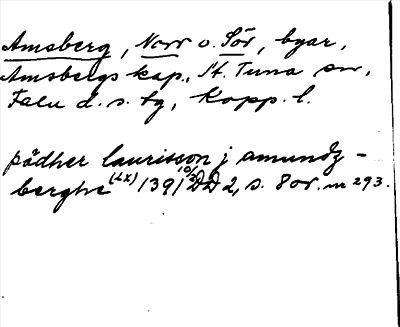 Amsberg, Norr o. Sör, byar,
Amsbergs kap., St. Tuna sn,
Falu d. s. tg, Kopp. l.
pädher laurisson j amundz-
berghe (LX) 1391 10/2 DD 2, s. 8 or. nr 293.